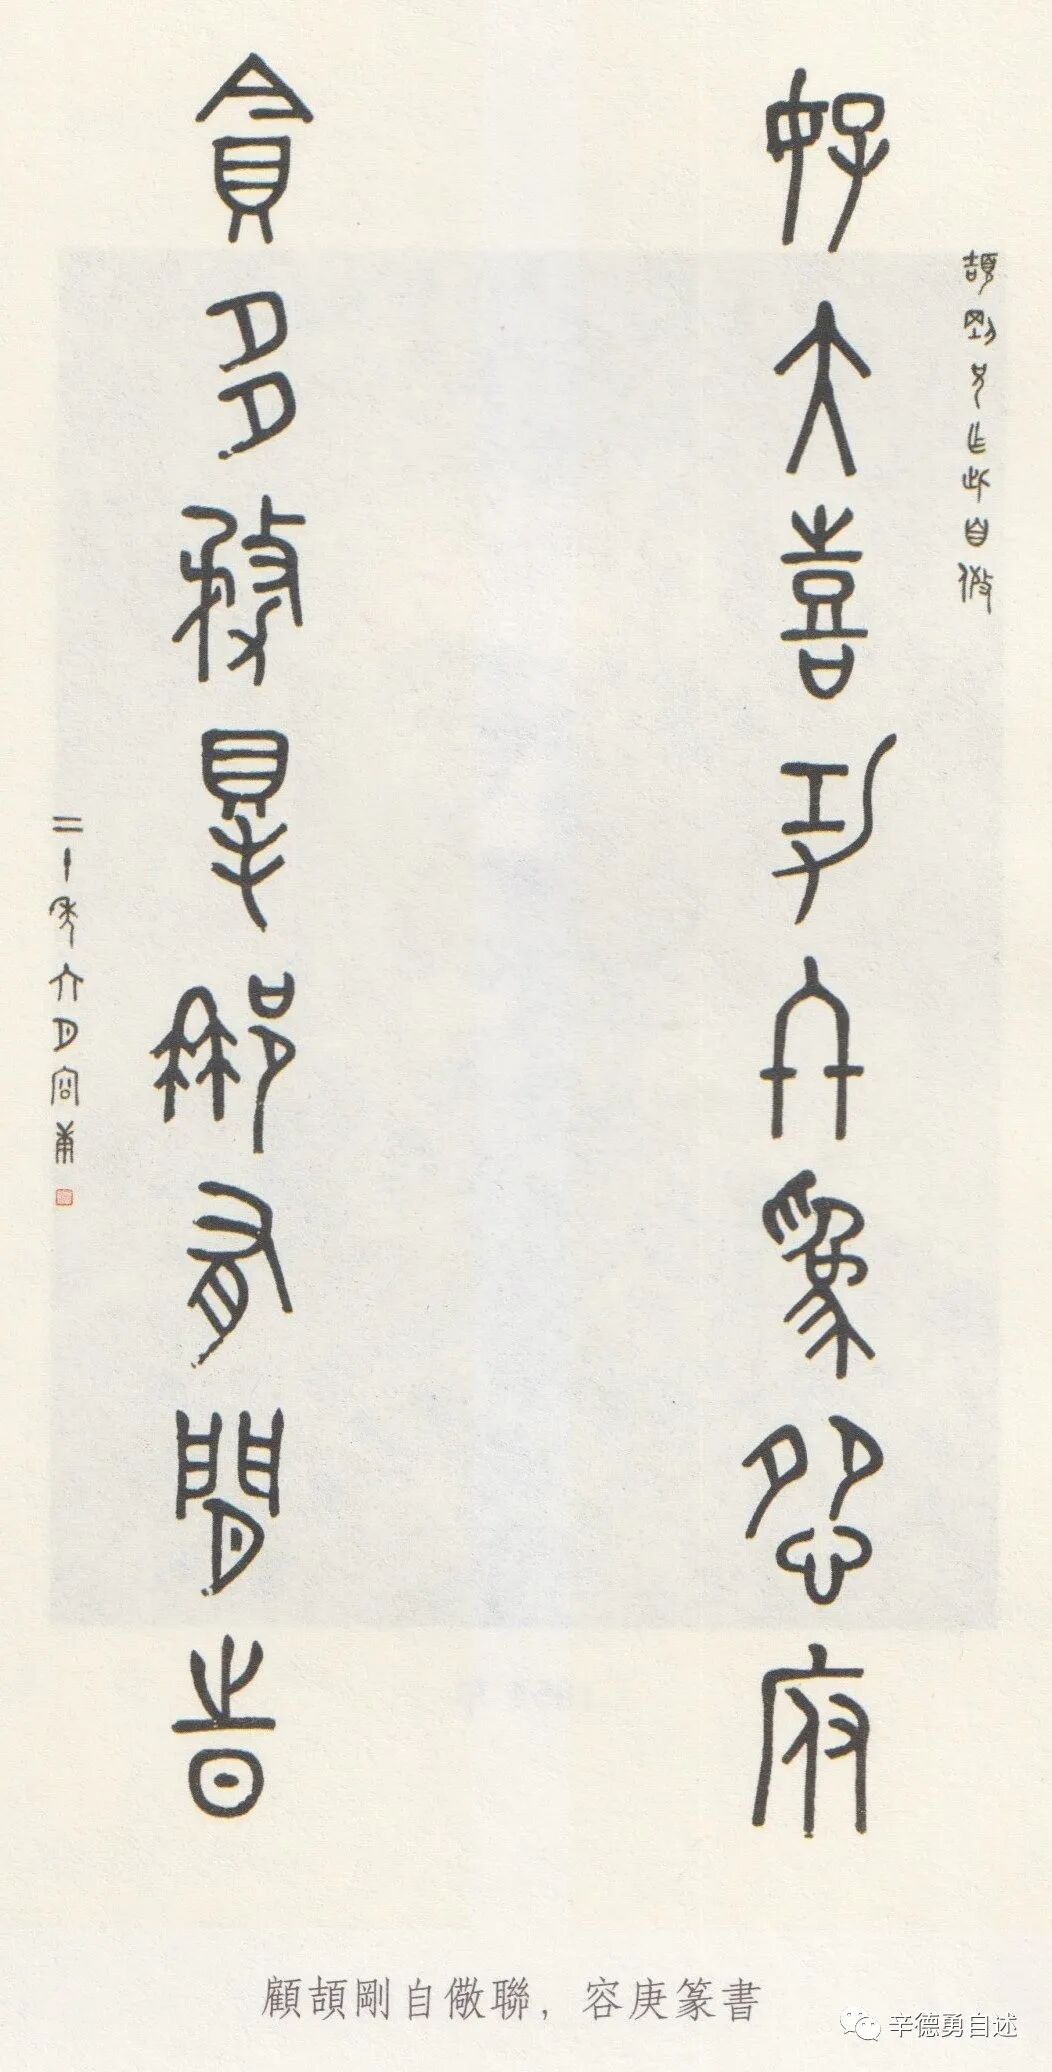 頡剛兄作此自儆
好大喜功終爲怨府
貪多務得那有閒時
二十年六月容庚
顧頡剛自儆聯，容庚篆書
辛德勇自述